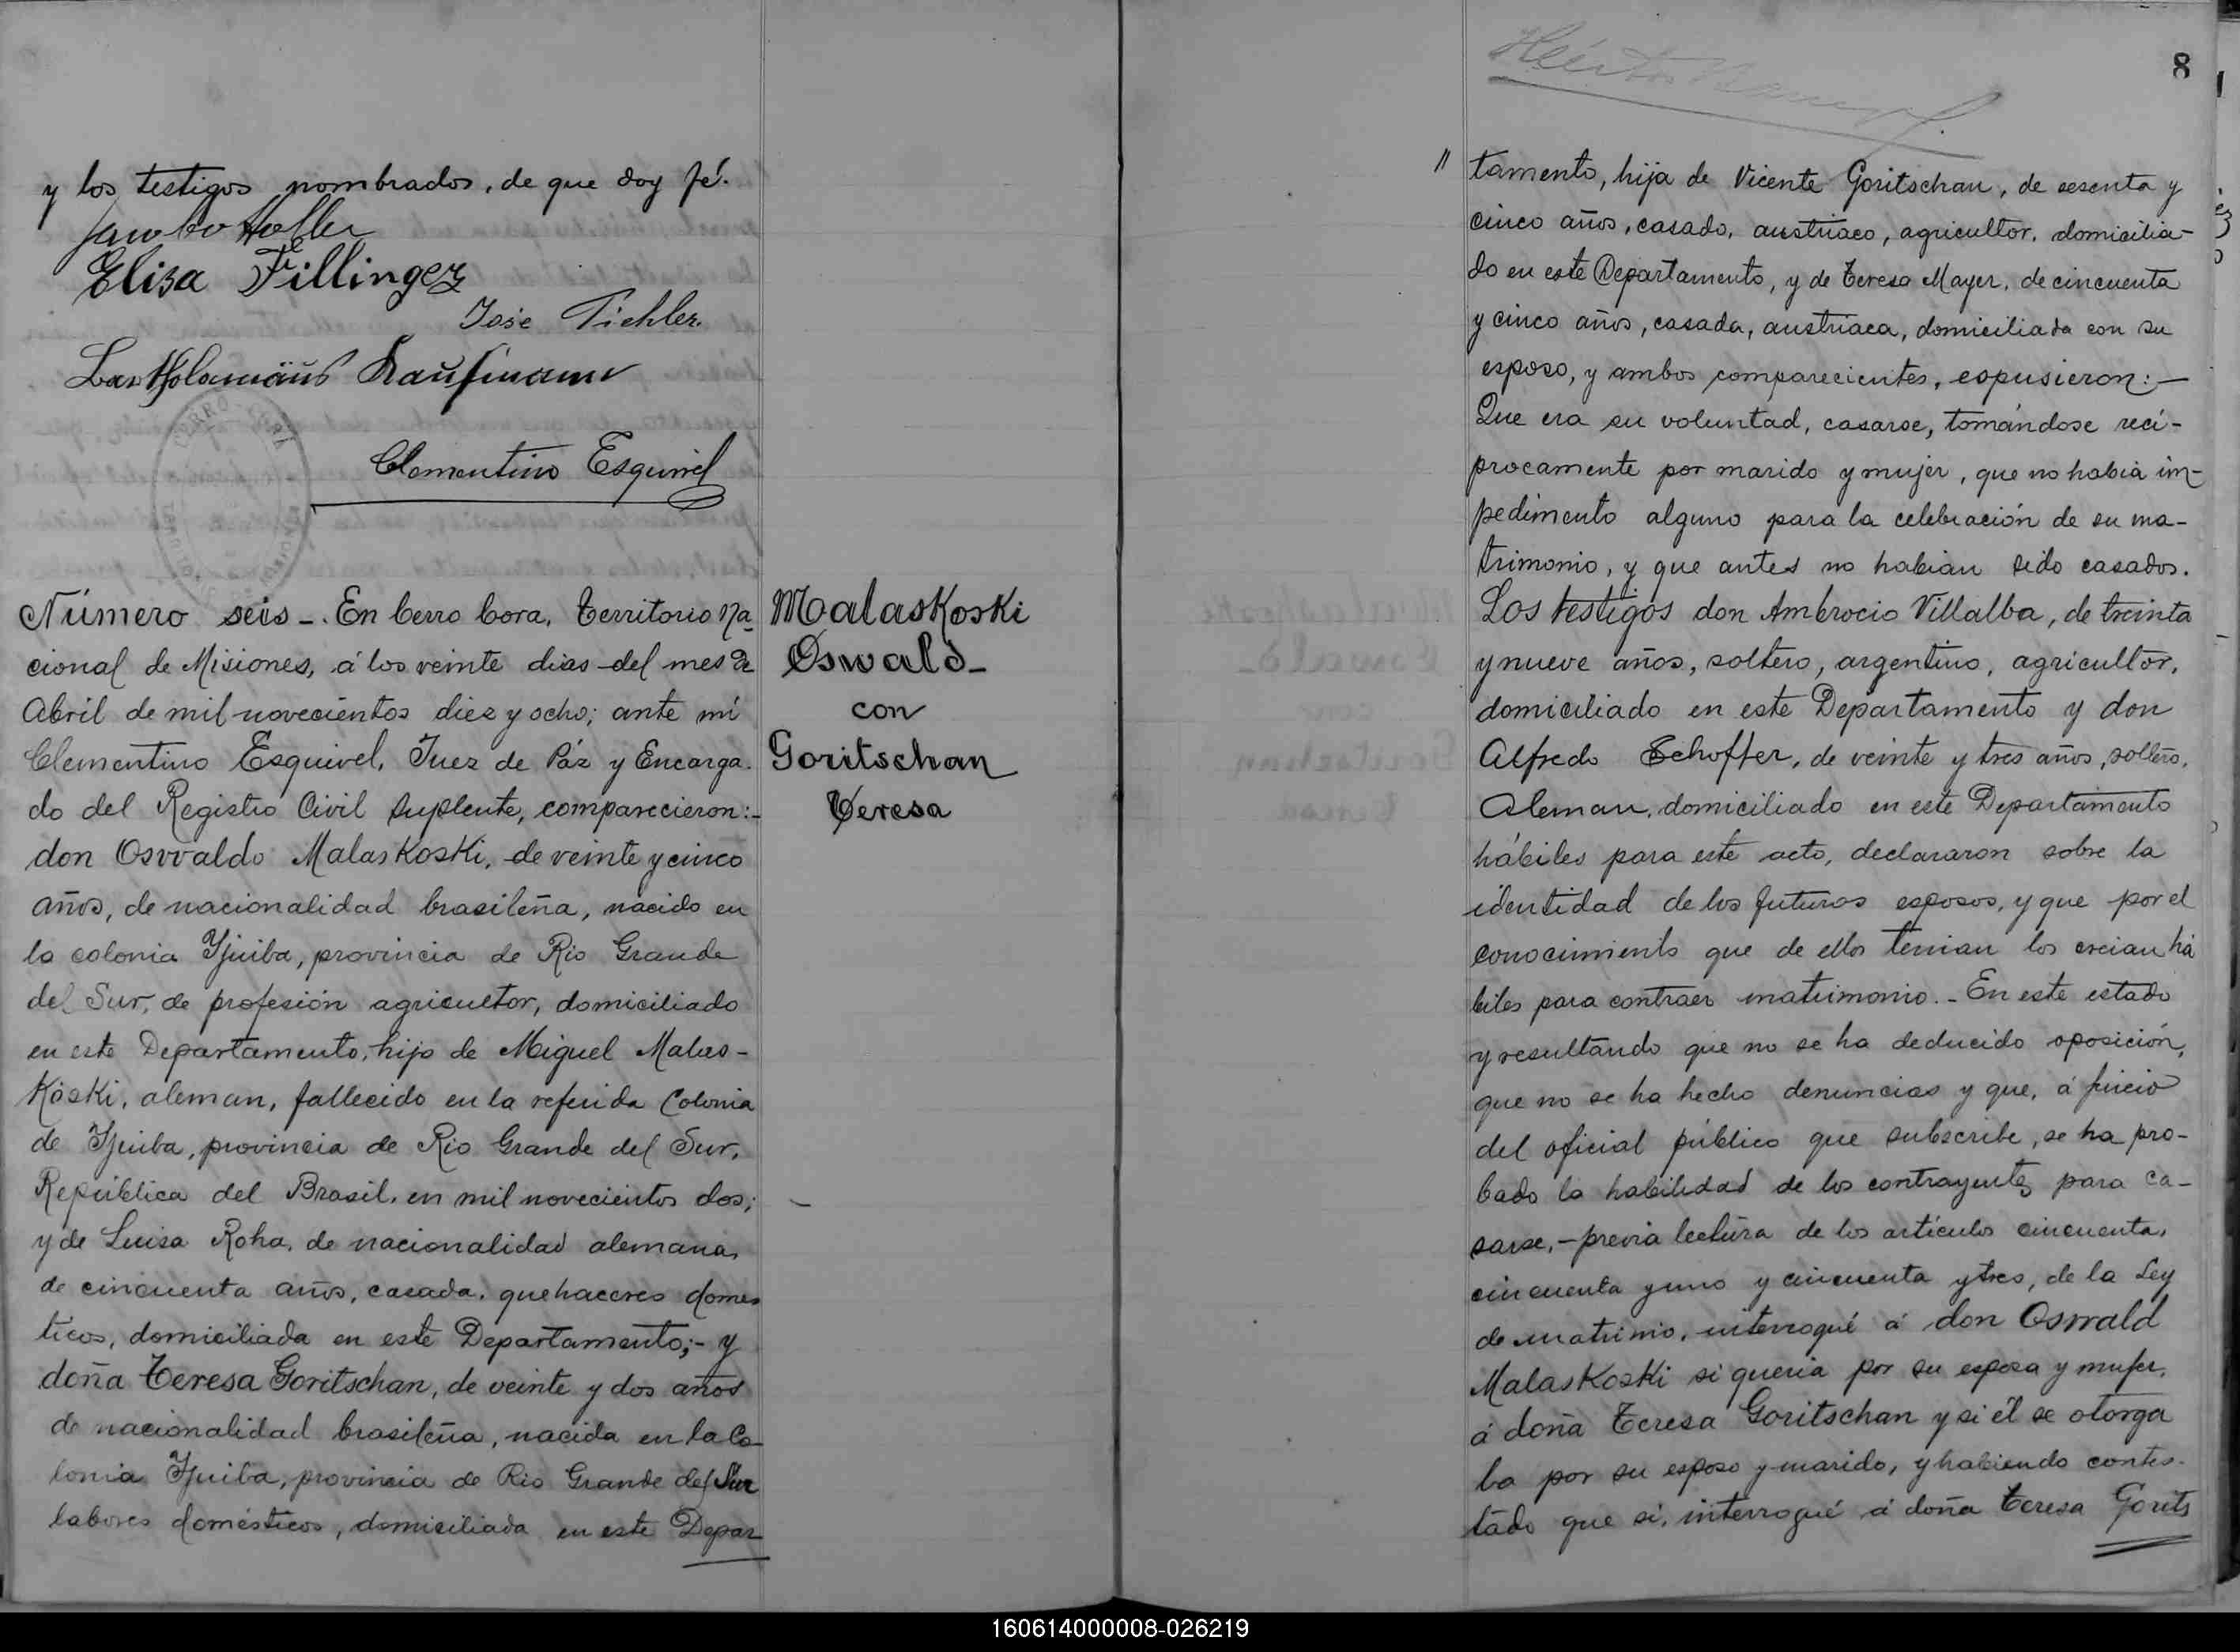 y los testigos nombrados, de que doy fé.
Elisa Fillinger
José Pichler.
Bartholomäus Kaufmann
Clementino Esquivel
CERRO-CORÁ
Número seis -. En Cerro Cora, Territorio Na
cional de Misiones, á los veinte dias del mes de
Abril de mil novecientos diez y ocho; ante mí
Clementino Esquivel, Juez de Páz y Encarga-
do del Registro Civil Suplente, comparecieron:-
don Osvvaldo Malaskoski, de veinte y cinco
años, de nacionalidad brasileña, nacido en
la colonia Yjuiba, provincia de Rio Grande
del Sur, de profesión agricultor, domiciliado
en este Departamento, hijo de Miguel Malas-
Koski, aleman, fallecido en la referida Colonia
de Yjuiba, provincia de Rio Grande del Sur,
República del Brasil, en mil novecientos dos;
y de Luisa Roha, de nacionalidad alemana,
de cincuenta años, casada, quehaceres domes
ticos, domiciliada en este Departamento;- y
doña Teresa Goritschan, de veinte y dos años
de nacionalidad brasileña, nacida en la Co-
lonia Yjuiba, provincia de Rio Grande del Sur
labores domésticos, domiciliada en este Depar
MalasKoski
Oswald-
con
Goritschan
Teresa
8
" tamento, hija de Vicente Goritschan, de sesenta y
cinco años, casado, austriaco, agricultor, domicilia-
do en este Departamento, y de Teresa Mayer, de cincuenta
y cinco años, casada, austriaca, domiciliada con su
esposo, y ambos comparecientes, espusieron:-
Que era su voluntad, casarse, tomándose reci-
procamente por marido y mujer, que no habia im-
pedimento alguno para la celebración de su ma-
trimonio, y que antes no habian sido casados.
Los testigos don Ambrocio Villalba, de treinta
y nueve años, soltero, argentino, agricultor,
domiciliado en este Departamento y don
Alfredo Schoffer, de veinte y tres años, soltero,
Aleman, domiciliado en este Departamento
hábiles para este acto, declararon sobre la
identidad de los futuros esposos, y que por el
conocimiento que de ellos tenian los creian há
biles para contraer matrimonio.- En este estado
y resultando que no se ha deducido oposición,
que no se ha hecho denuncias y que, á juicio
del oficial público que subscribe, se ha pro-
bado la habilidad de los contrayentes para ca-
sarse,- previa lectura de los artículos cincuenta,
cincuenta y uno y cincuenta y tres, de la Ley
de matrimio, interrogué á don Oswald
MalasKoski si queria por su esposa y mujer,
á doña Teresa Goritschan y si él se otorga
ba por su esposo y marido, y habiendo contes-
tado que si, interrogué á doña Teresa Gorits
160614000008-026219